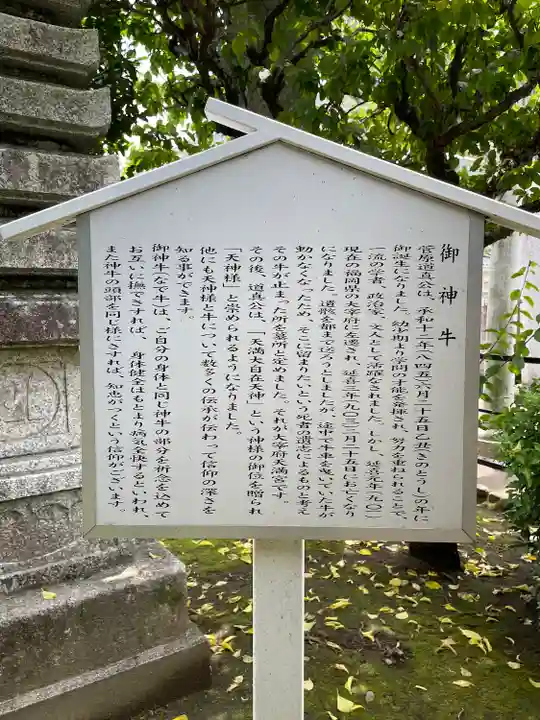 御神牛
菅原道真公は、承和十二年(八四五)六月二十五日乙丑(きのとうし)の年に
御誕生になりました。幼少期より学問の才能を発揮され、努力を重ねられることで、
一流の学者、政治家、文人として活躍なされました。しかし、延喜元年(九〇一)
現在の福岡県の太宰府に左遷され、延喜三年(九〇三)二月二十五日にお亡くなり
になりました。遺骸を都まで送ろうとしましたが、途中で牛車を曳いていた牛が
動かなくなったため、そこに留まりたいという死者の遺志によるものと考え
その牛が止まった所を墓所と定めました。それが太宰府天満宮です。
その後、道真公は、「天満大自在天神」という神様の御位を贈られ
「天神様」と崇められるようになりました。
他にも天神様と牛について数多くの伝承が伝わって信仰の深さを
知る事ができます。
御神牛(なで牛)は、ご自分の身体と同じ神牛の部分を祈念を込めて
お互いに撫でさすれば、身体健全はもとより病気全快するといわれ、
また神牛の頭部を同じ様にさすれば、知恵がつくという信仰がございます。